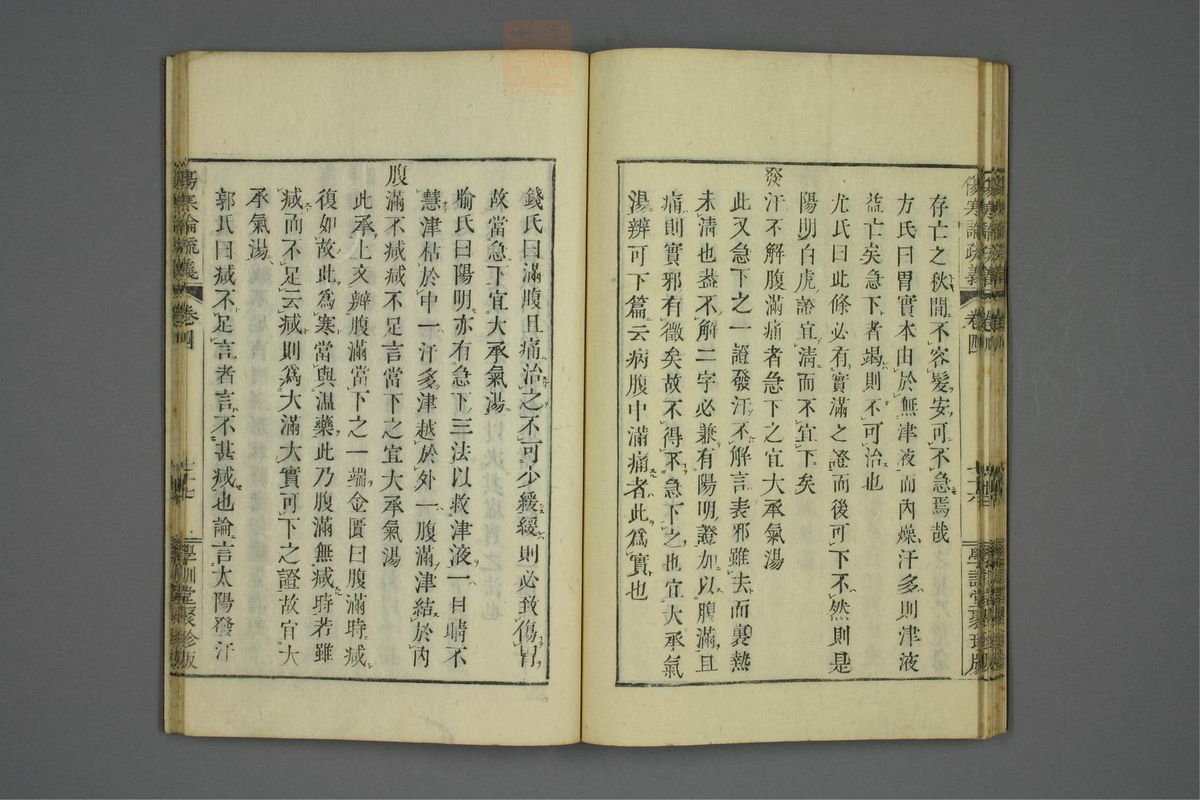 存亡之秋間不容髮安可不急焉哉
方氏曰胃實本由於無津液而內燥汗多則津液
益亡矣急下者竭則不可治也
尤氏曰此條必有實滿之證而後可下不然則是
陽明白虎證宜清而不宜下矣
發汗不解腹滿痛者急下之宜大承氣湯
此又急下之一證發汗不解言表邪雖去而裏熱
未清也蓋不解二字必兼有陽明證加以腹滿且
痛則實邪有徵矣故不得不急下之也宜大承氣
湯辨可下篇云病腹中滿痛者此爲實也
傷寒論疏義
卷四
學訓堂聚珍版
錢氏曰滿腹且痛治之不可少緩緩則必致傷胃
故當急下宜大承氣湯
喻氏曰陽明亦有急下三法以救津液一目睛不
慧津枯於中一汗多津越於外一腹滿津結於內
腹滿不減減不足言當下之宜大承氣湯
此承上文辨腹滿當下之一端金匱曰腹滿時減
復如故此爲寒當與温藥此乃腹滿無減時若雖
減而不足云減則爲大滿大實可下之證故宜大
承氣湯
郭氏曰減不足言者言不甚減也論言太陽發汗
傷寒論疏義
卷四
學訓堂聚珍版